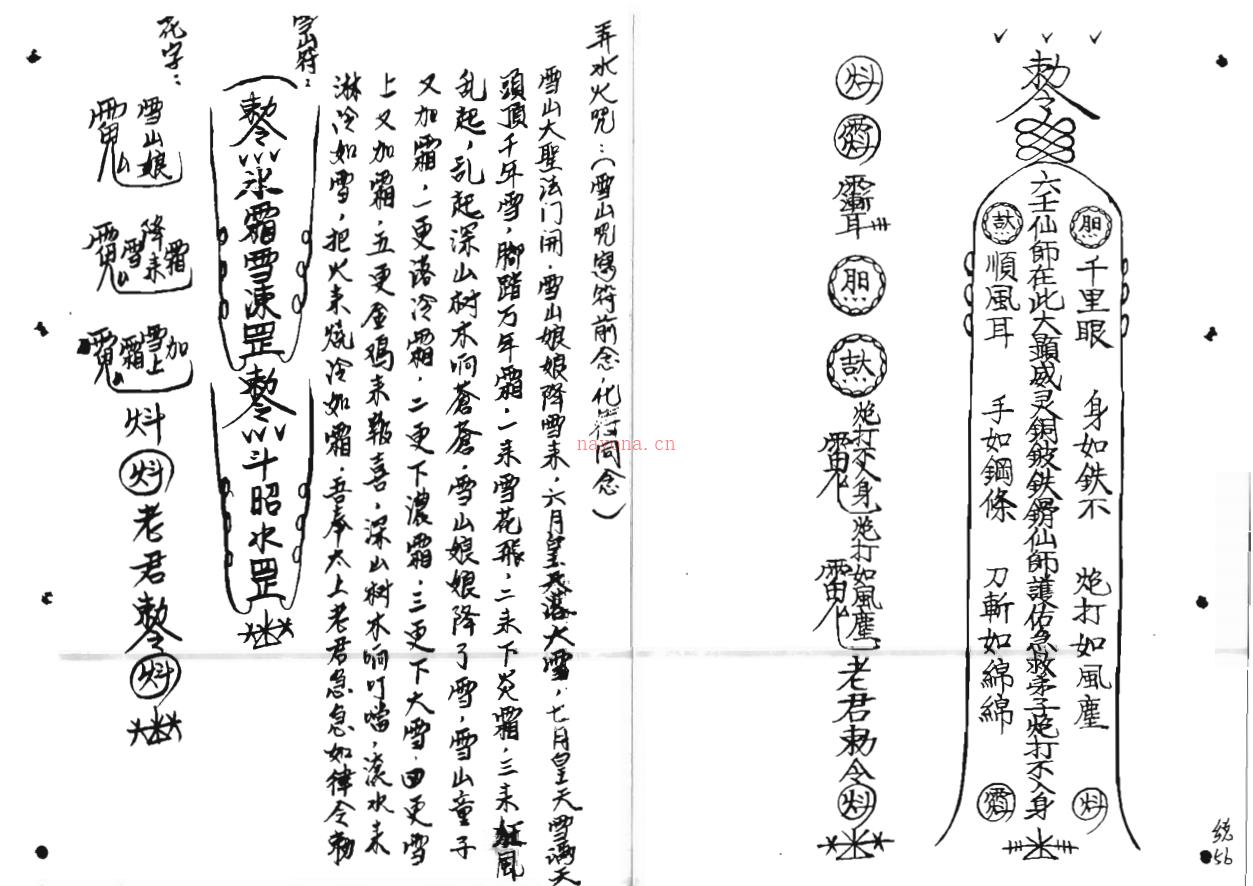 勅令
六壬仙師在此大顯威灵銅皷鉄鎖仙師護佑急救弟子炮打不入身
千里眼 身如鉄不 炮打如風塵
順風耳 手如鋼條 刀斬如綿綿
炮打不入身
炮打如風塵
老君勅令
統56
弄水火咒：（雪山咒寫符前念化符同念）
雪山大聖法门開，雪山娘娘降雪来，六月皇天落大雪，七月皇天雪满天
頭頂千年雪，腳踏万年霜，一来雪花飛，二来下炎霜，三来狂風
乱起，乱起深山树木响蒼蒼，雪山娘娘降了雪，雪山童子
又加霜，一更落冷霜，二更下濃霜，三更下大雪，四更雪
上又加霜，五更金鸡来報喜，深山树木响叮噹，滚水来
淋冷如雪，把火来燒冷如霜，吾奉太上老君急急如律令勅
雪山符：
勅令氷霜雪凍罡
勅令斗昭水罡
花字：
雪山娘
降霜雪来
雪上加霜
老君勅令
nayona.cn